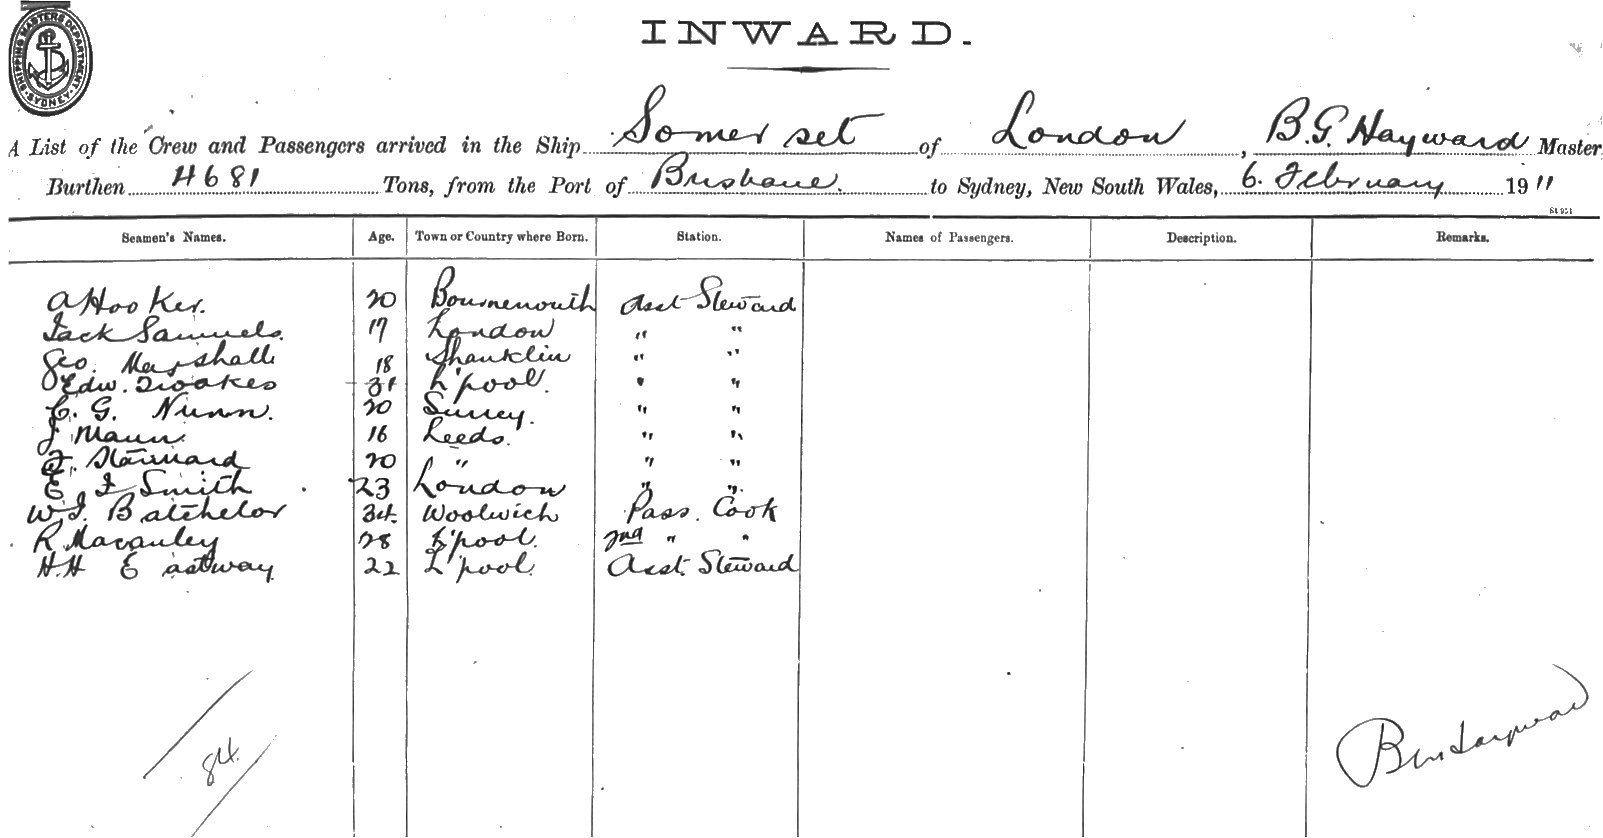 SHIPPING MASTERS DEPARTMENT SYDNEY
INWARD.
A List of the Crew and Passengers arrived in the Ship Somerset of London, B.G. Hayward Master
Burthen 4681 Tons, from the Port of Brisbane. to Sydney, New South Wales, 6. February 1911
Seamen's Names. Age. Town or Country where Born. Station. Names of Passengers. Description. Remarks.
A Hooker. 20 Bournemouth Asst Steward
Jack Samuels. 17 London " "
Geo. Marshall 18 Shanklin " "
Edw. 31 L'pool. " "
C. G. Nunn. 20 Surrey. " "
J Mann 16 Leeds. " "
F. Stannard 20 " " "
E F Smith 23 London " "
W. J. Batchelor 34. Woolwich Pass. Cook
R Macauley 28 L'pool. 2nd " "
H.H Eastway 22 L'pool. Asst. Steward
84.